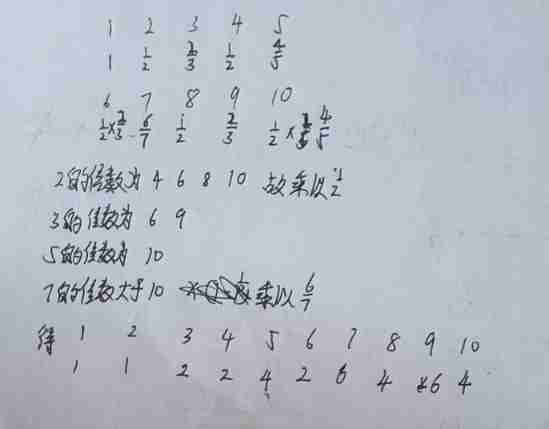 1 2 3 4 5
1 1/2 2/3 1/2 4/5
6 7 8 9 10
1/2×2/3 6/7 1/2 2/3 1/2×4/5
2的倍数为 4 6 8 10 故乘以1/2
3的倍数为 6 9
5的倍数为 10
7的倍数大于10 乘以6/7
得 1 2 3 4 5 6 7 8 9 10
1 1 2 2 4 2 6 4 6 4